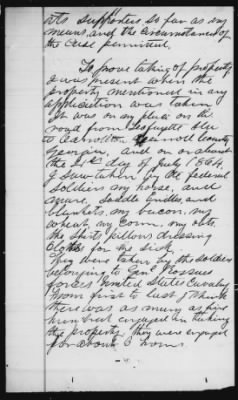 its supporters so far as my
means, and the circumstances of
the case permitted.
To prove taking of property
I was present when the
property mentioned in my
application was taken
It was on my place on the
road from Lafayette Ala
to Carrollton Carroll County
Georgia and on or about
the 21st day of July 1864.
I saw taken by the federal
soldiers my horse, and
mare, saddle bridles, and
blankets, my bacon, my
wheat, my corn, my oats,
the shirts pillows dressing
cloths for the sick.
They were taken by the soldiers
belonging to Genl Rosseus
forces United States Cavalry
from first to last, I think
there was as many as five
hundred engaged in taking
the property. They were engaged
for about 3 hours.